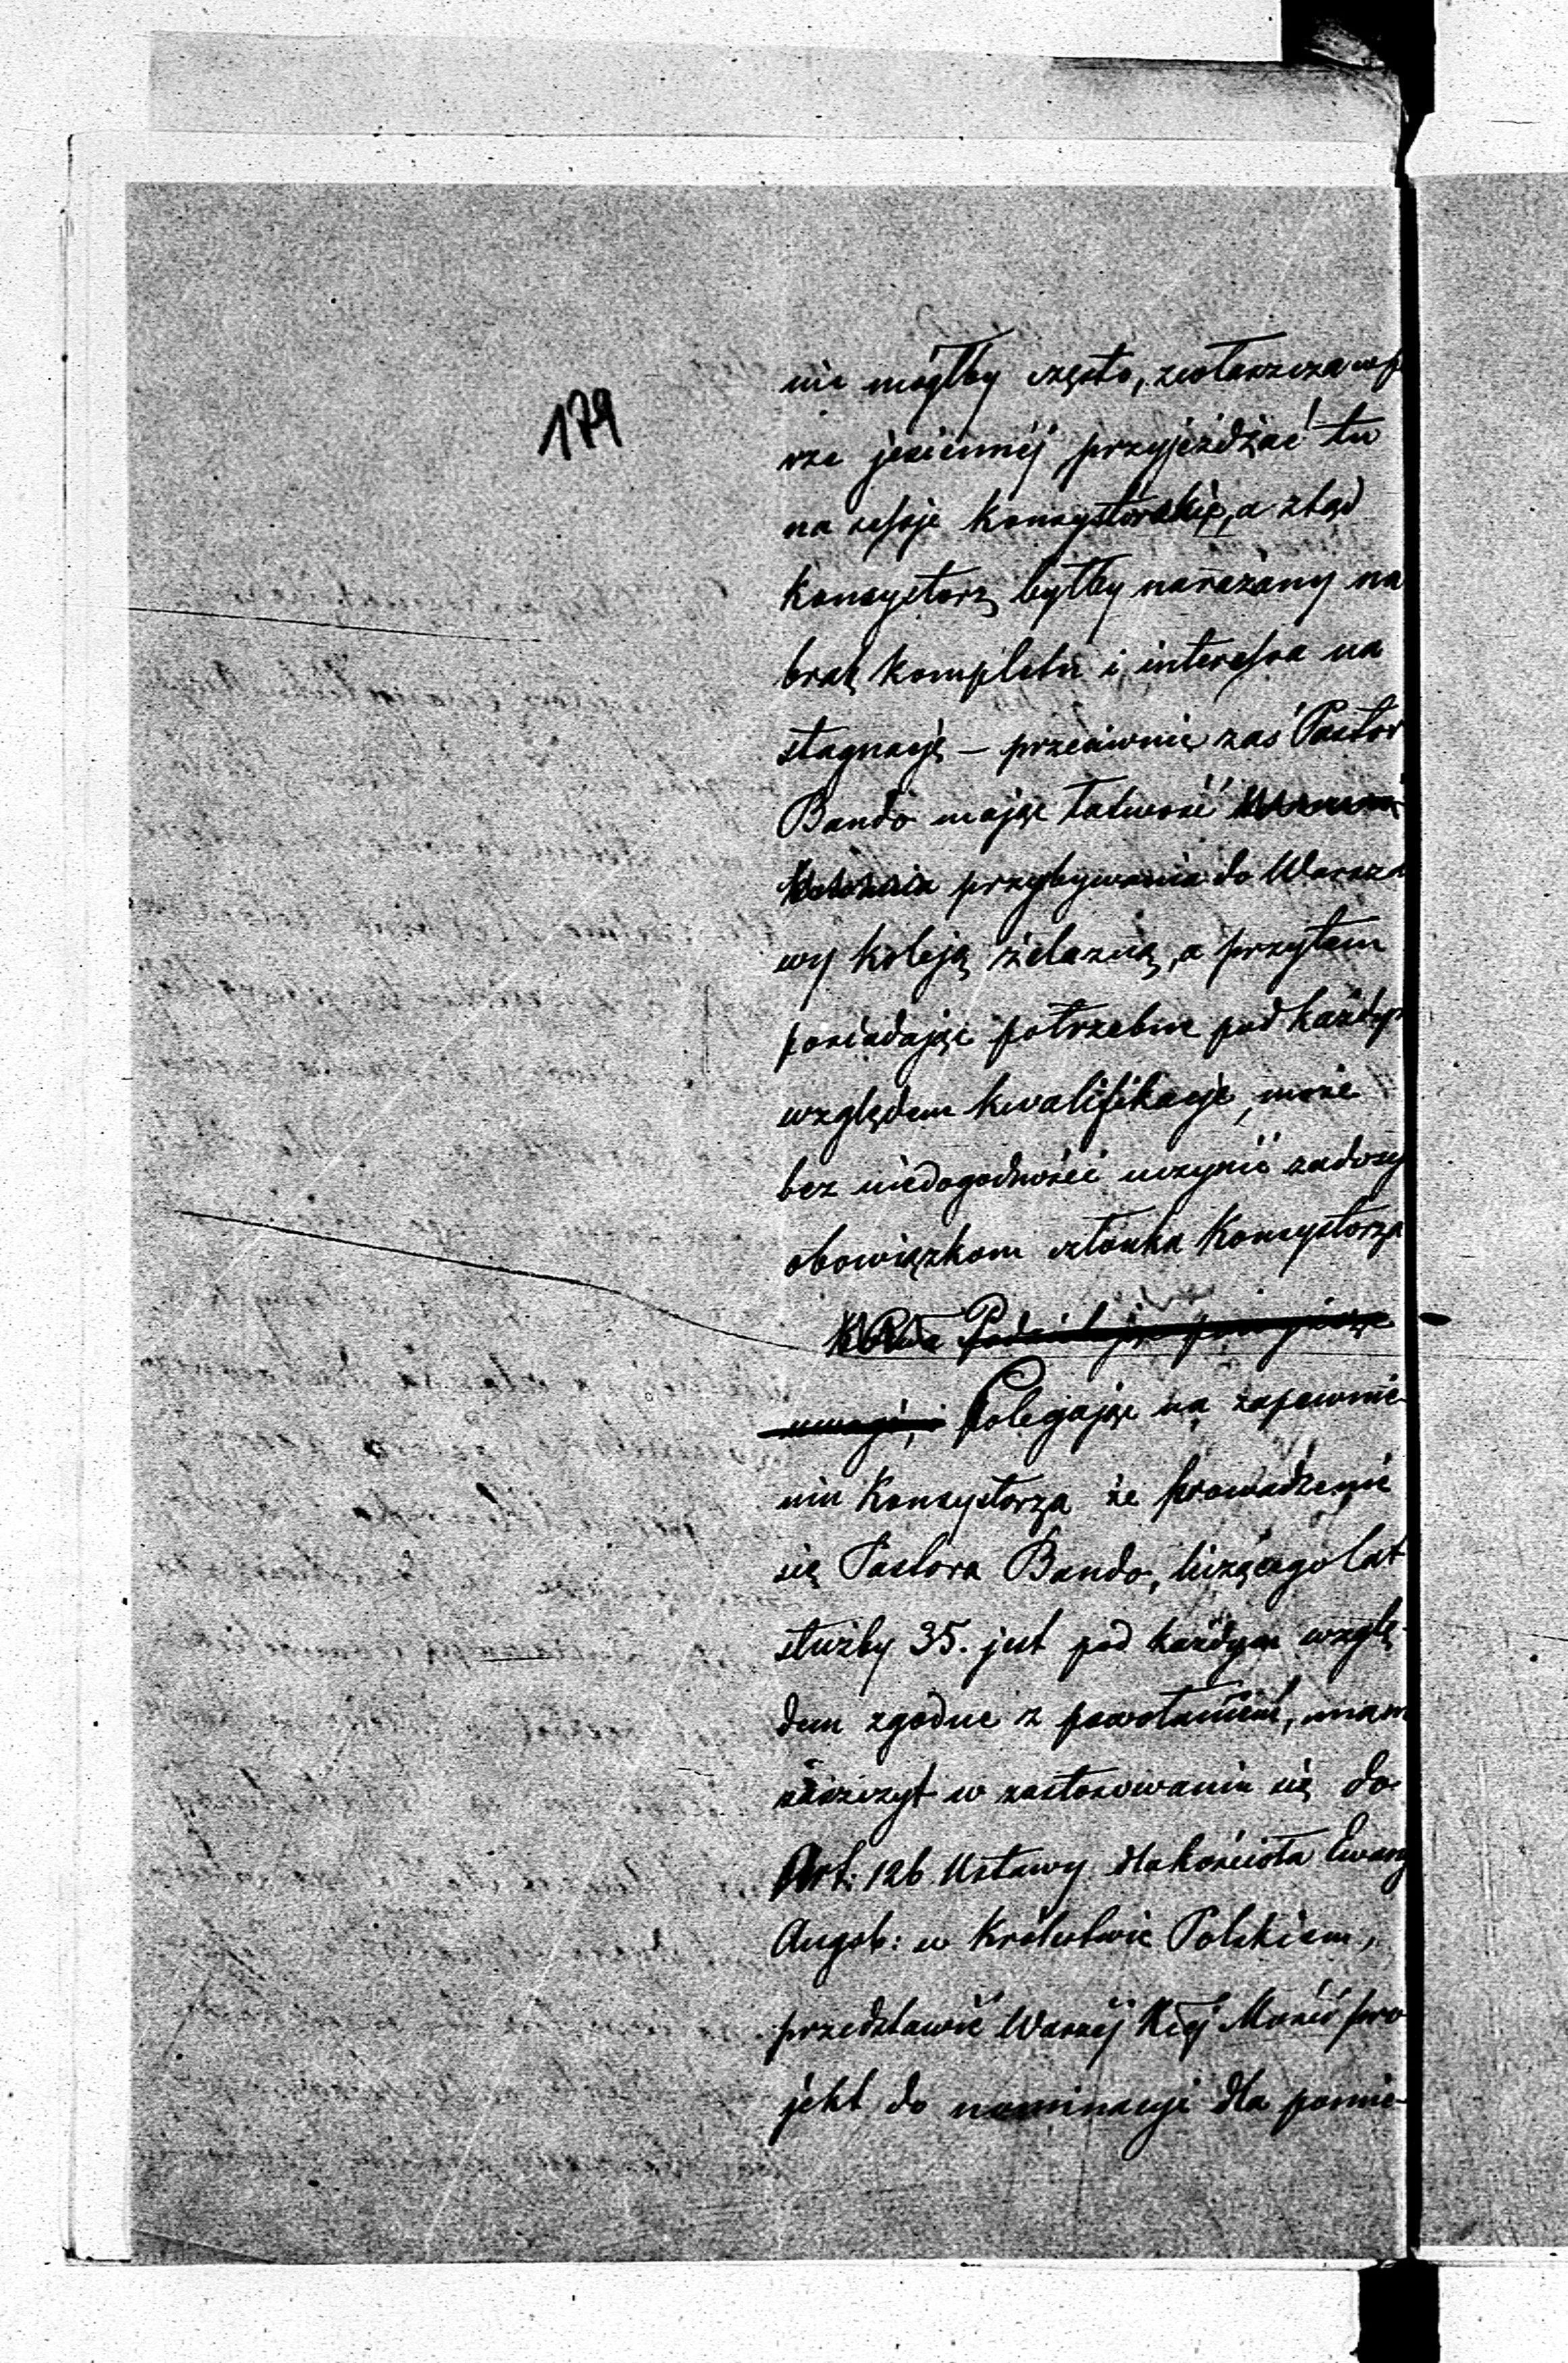 179
nie mógłby często, zwłaszcza w p
rze jesiennéj przyjeżdżać tu
na sessje Konsystorskie, a ztąd
Konsystorz byłby narażany na
brak kompletu i interessa na
stagnacyę – przeciwnie zaś Pastor
Bando mając łatwość
przybywania do Warsza
wy koleją żelazną, a przytem
posiadając potrzebne pod każdym
względem kwalifikacje, może
bez niedogodności uczynić zadosyć
obowiązkom członka Konsystorza
Podzielając powyższe
uwagi, i Polegając na zapewnie-
niu Konsystorza że prowadzenie
się Pastora Bando, liczącego lat
służby 35. jest pod każdym wzglę-
dem zgodne z powołaniem, mam
zaszczyt w zastosowaniu się do
Art: 126 Ustawy dla kościoła Ewang
Augsb: w Królestwie Polskiem,
przedstawić Waszéj Mości pro
jekt do nominacyi dla pomie-